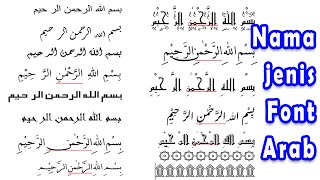 بسم الله الرحمن الر حيم
بسم الله الرحمن الر حيم
بسم الله الرحمن الر حيم
بِسْمِ اللهِ الرَّحْمٰنِ الرَّ حِيْمِ
بسم الله الرحمن الر حيم
بسم الله الرحمن الر حيم
بِسْمِ اللهِ الرَّحْمٰنِ الرَّحِيْمِ
بِسْمِ اللهِ الرَّحْمٰنِ الرَّ حِيْمِ
بِسْمِ اللهِ الرَّحْمٰنِ الرَّ حِيْمِ
بِسْمِ اللهِ الرَّحْمٰنِ الرَّحِيْمِ
بِسْمِ اللهِ الرَّحْمٰنِ الرَّ حِيْمِ
بِسْمِ اللهِ الرَّحْمٰنِ الرَّ حِيْمِ
بِسْمِ اللهِ الرَّحْمٰنِ الرَّ حِيْمِ
Nama
jenis
Font
Arab